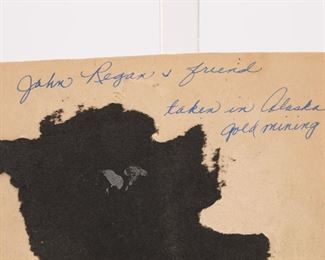 John Regan & friend
taken in Alaska
gold mining